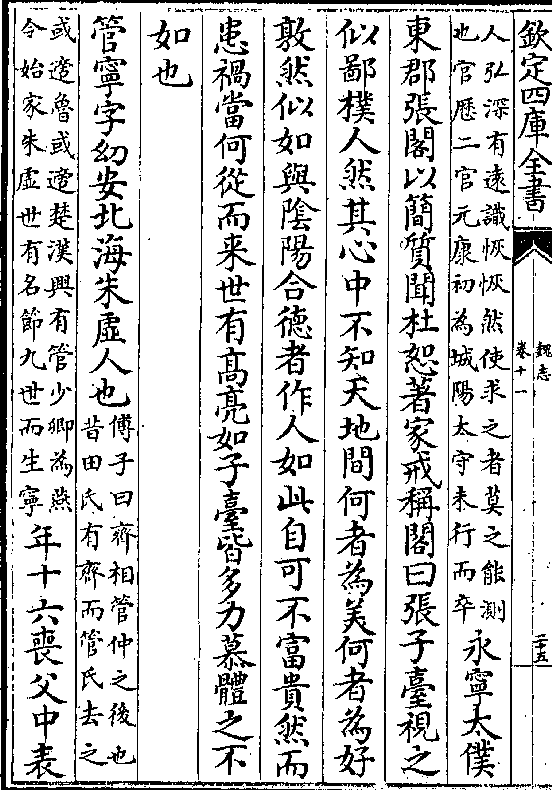 欽定四庫全書
魏志
卷十一
二十五
人弘深有遠識恢恢然使求之者莫之能測
也官歴二官元康初為城陽太守未行而卒
永寧太僕
東郡張閣以簡質聞杜恕著家戒稱閣曰張子臺視之
似鄙樸人然其心中不知天地間何者為美何者為好
敦然似如與隂陽合徳者作人如此自可不富貴然而
患禍當何從而来世有髙亮如子臺皆多力慕體之不
如也
管寧字幼安北海朱虚人也
傅子曰齊相管仲之後也
昔田氏有齊而管氏去之
或適魯或適楚漢興有管少卿為燕
令始家朱虚世有名節九世而生寧
年十六喪父中表